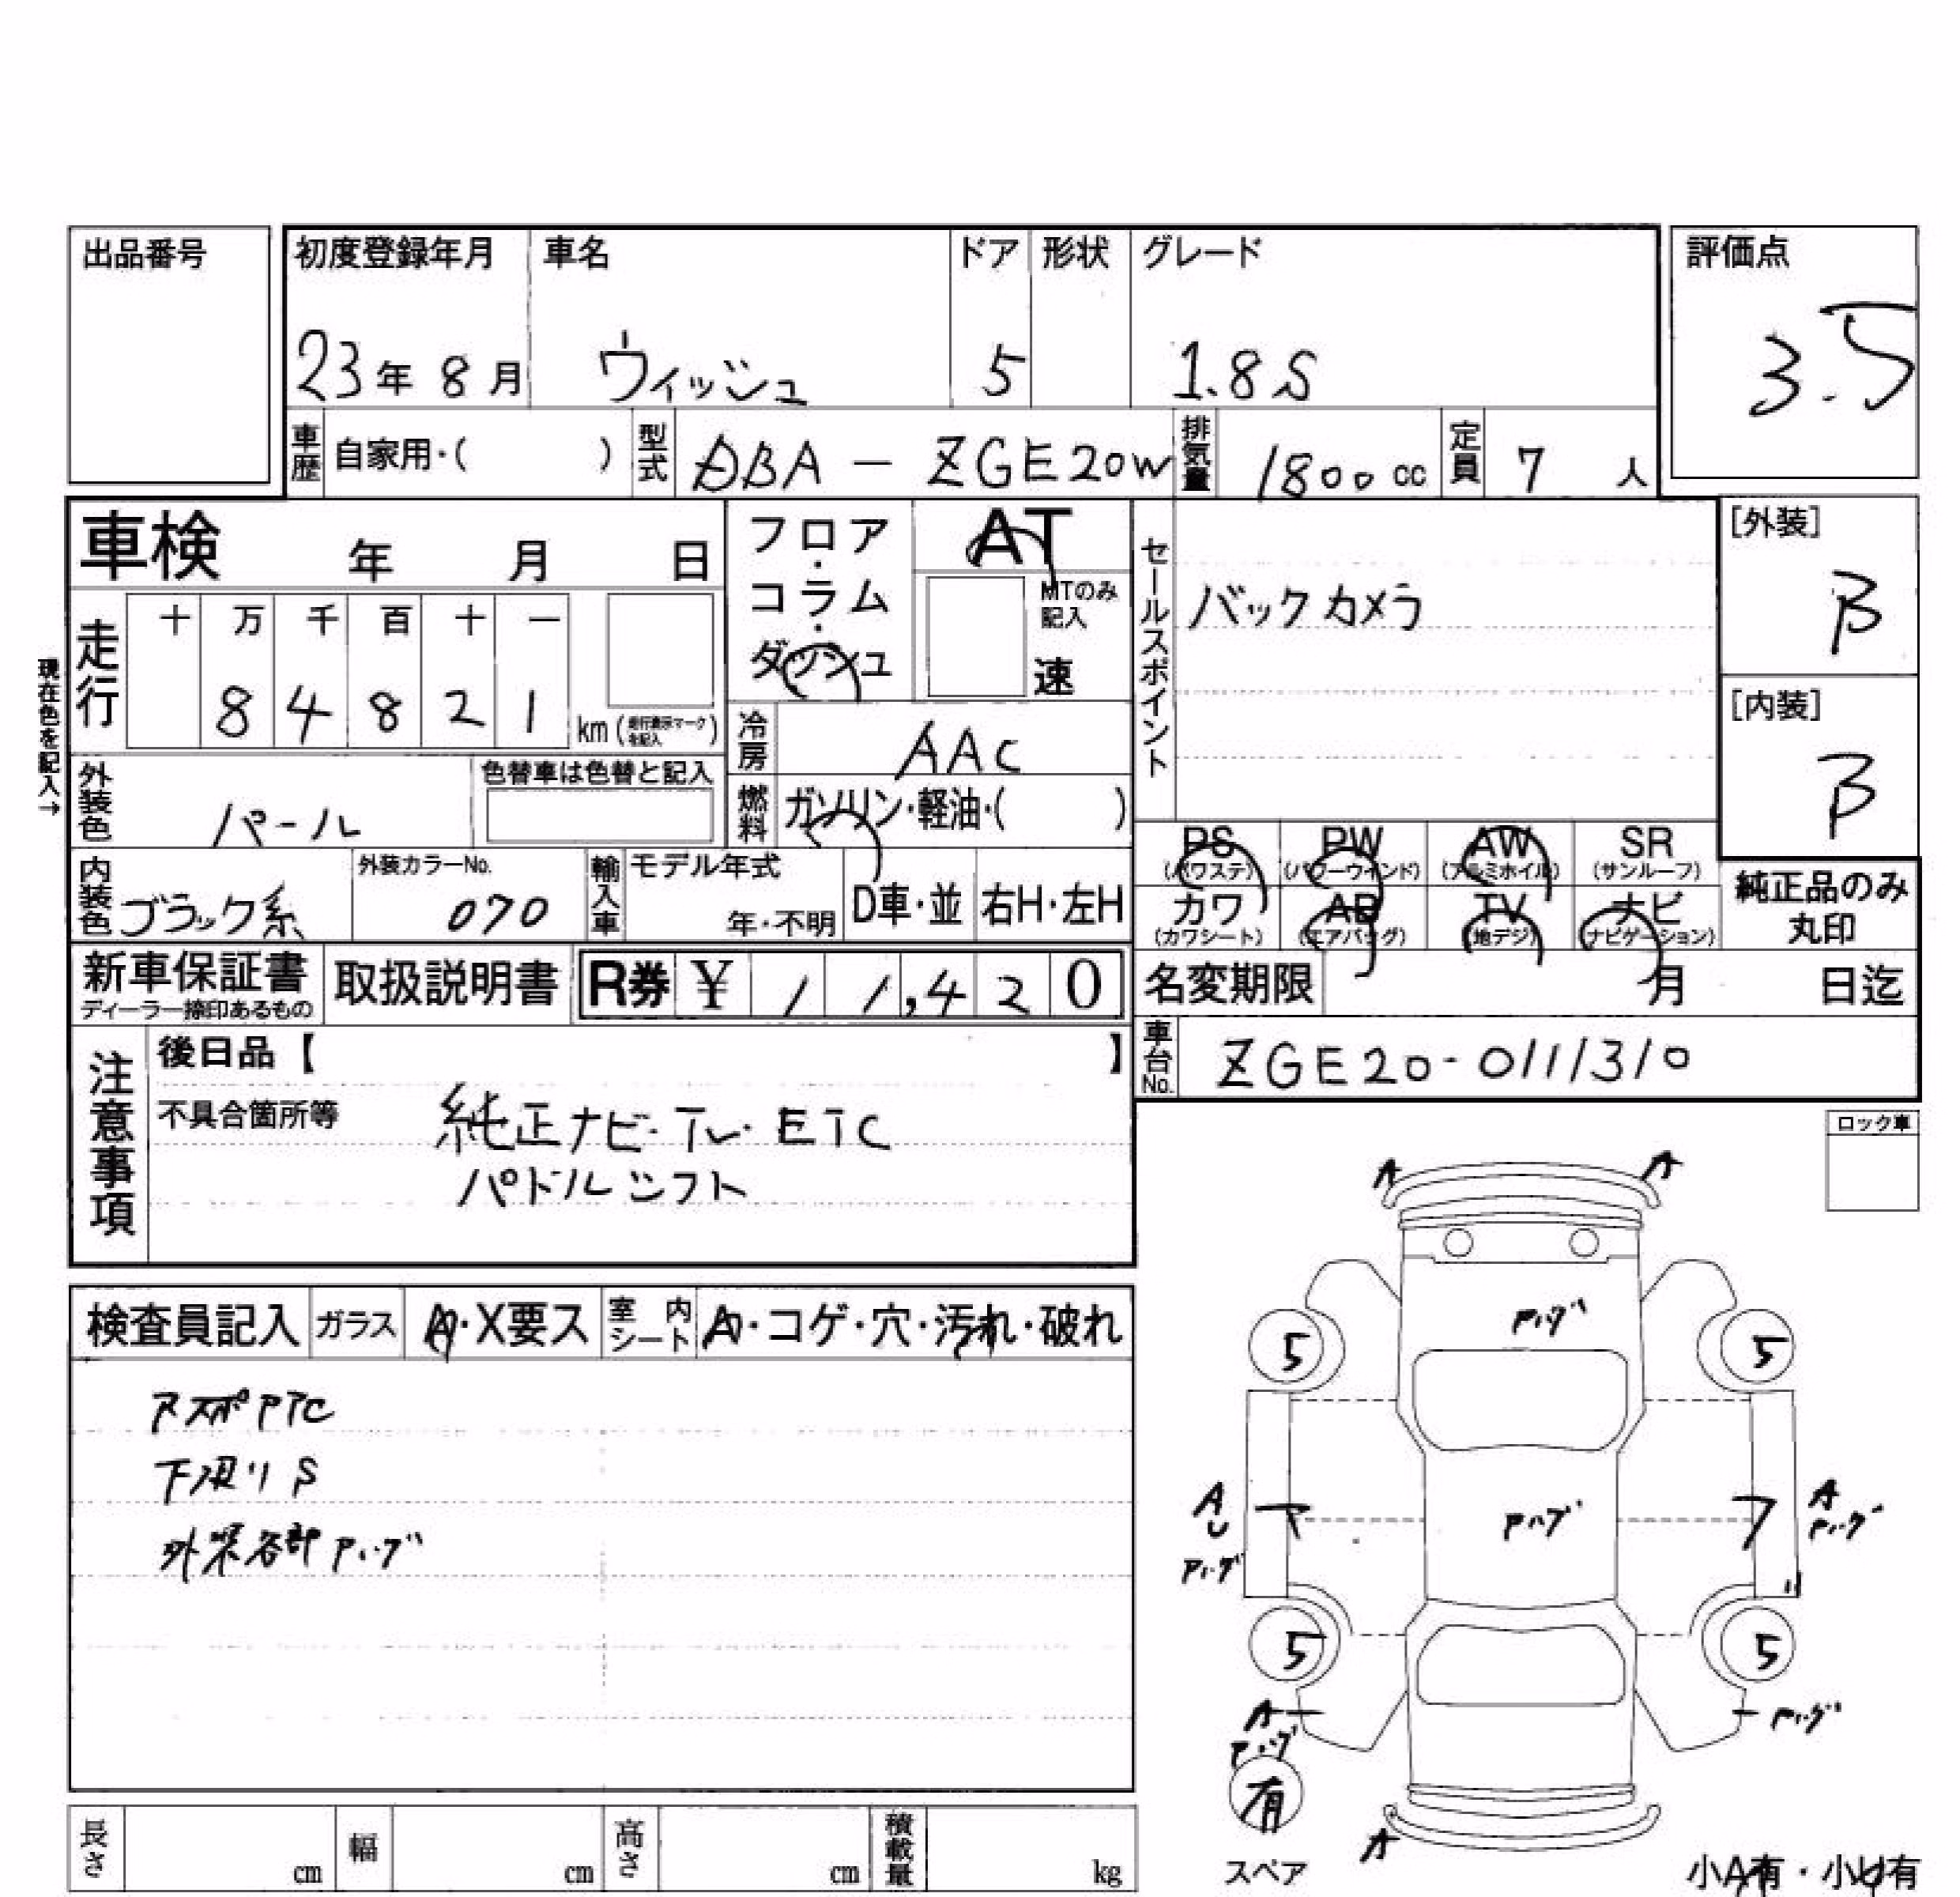 出品番号
初度登録年月 車名 ドア 形状 グレード
評価点
23年 8月 ウィッシュ 5 1.8S
3.5
車歴 自家用・( ) 型式 DBA - ZGE20W 排気量 1800cc 定員 7人
車検 年 月 日
フロア・コラム・ダッシュ
AT
MTのみ記入
速
セールスポイント
バックカメラ
[外装]
B
[内装]
B
現在色を記入→
走行 十 万 千 百 十 一
8 4 8 2 1 km (走行表示マークを記入)
冷房 AAC
外装色 パール 色替車は色替と記入
燃料 ガソリン・軽油・( )
PS (パワステ) PW (パワーウインド) AW (アルミホイル) SR (サンルーフ)
カワ (カワシート) AB (エアバッグ) TV (地デジ) ナビ (ナビゲーション)
純正品のみ丸印
内装色 ブラック系 外装カラーNo. 070 輸入車 モデル年式 年・不明 D車・並 右H・左H
新車保証書 ディーラー捺印あるもの 取扱説明書 R券 ¥ 11,420
名変期限 月 日迄
車台No. ZGE20-0111310
注意事項
後日品【 】
不具合箇所等 純正ナビ・TV・ETC
パドルシフト
ロック車
検査員記入 ガラス A・X要ス 室内シート A・コゲ・穴・汚れ・破れ
下廻りS
外装各部
A A
5 5
A
U
A
5 5
A
有
スペア
A
小A有・小U有
長さ cm 幅 cm 高さ cm 積載量 kg